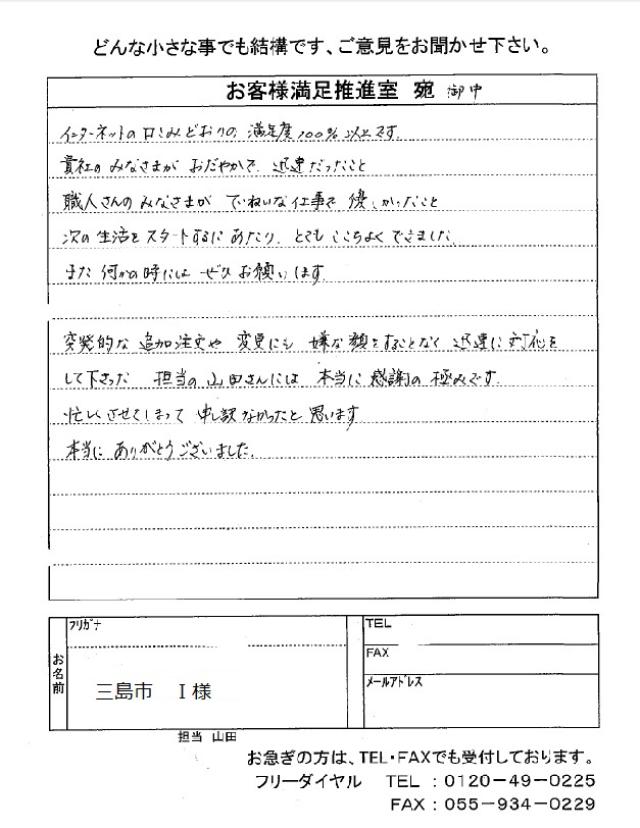 どんな小さな事でも結構です、ご意見をお聞かせ下さい。
お客様満足推進室 宛 御中
インターネットの口コミどおりの 満足度100%以上です.
貴社の みなさまが おだやかで. 迅速だったこと
職人さんの みなさまが ていねいな仕事で 優しかったこと
次の 生活を スタートするに あたり. とても ここちよく できました.
また 何かの時には ぜひ お願いします.
突発的な 追加注文や 変更にも 嫌な顔をすることなく 迅速に 対応を
して下さった 担当の 山田さんには 本当に 感謝の 極みです.
忙しくさせてしまって 申し訳なかったと 思います
本当に ありがとうございました.
フリガナ
お名前
三島市 I様
TEL
FAX
メールアドレス
担当 山田
お急ぎの方は、TEL・FAXでも受付しております。
フリーダイヤル TEL:0120-49-0225
FAX:055-934-0229